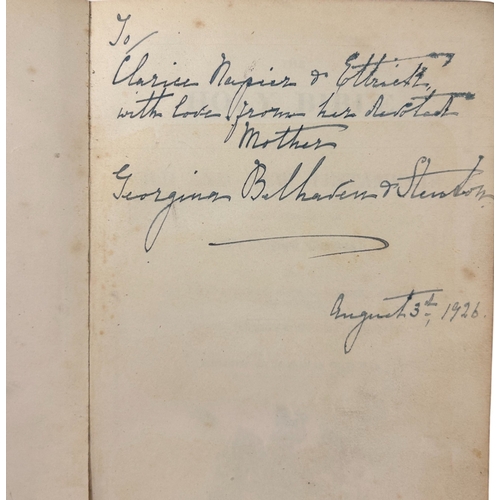 To/
Clarice Napier & Ettrick,
with love from her devoted
Mother
Georgina Belhaven & Stenton
August 3rd, 1926.